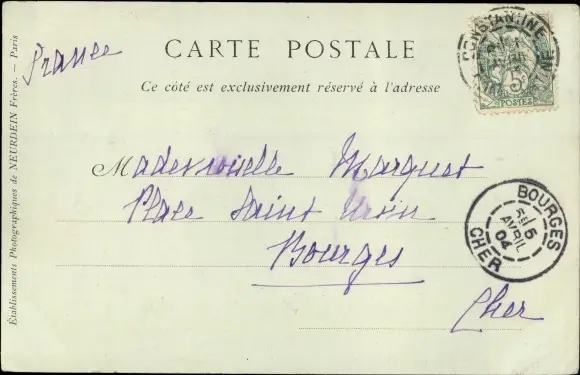 France
CARTE POSTALE
Ce côté est exclusivement réservé à l'adresse
Mademoiselle Marquet
Place Saint Ursin
Bourges
Cher
Établissements Photographiques de NEURDEIN Frères. — Paris
CONSTANTINE
5
POSTES
BOURGES
5
AVRIL
04
CHER